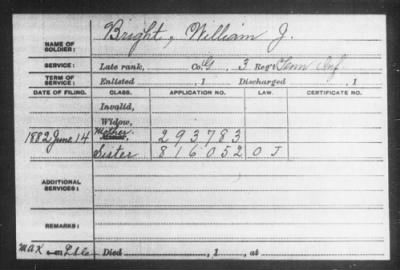 Bright, William J.
NAME OF SOLDIER:
SERVICE: Late rank, Co. G, 3 Reg't Tenn Inf
TERM OF SERVICE: Enlisted , 1 Discharged , 1
DATE OF FILING. CLASS. APPLICATION NO. LAW. CERTIFICATE NO.
Invalid,
Widow,
1882 June 14 Mother 293783
Sister 816052 O J
ADDITIONAL SERVICES:
REMARKS:
Died , 1 , at